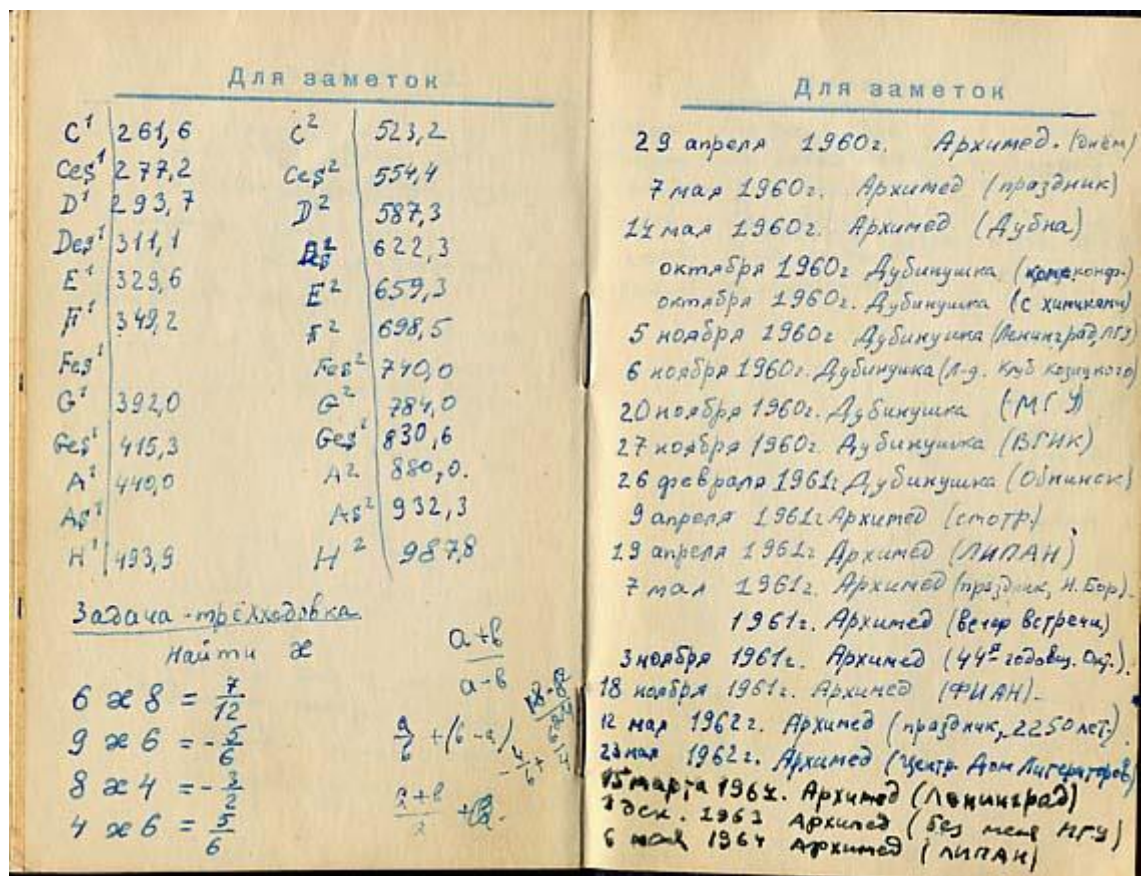 Для заметок
C¹ 261,6 C² 523,2
Ces¹ 277,2 Ces² 554,4
D¹ 293,7 D² 587,3
Des¹ 311,1 622,3
E¹ 329,6 E² 659,3
F¹ 349,2 F² 698,5
Fes¹ Fes² 740,0
G¹ 392,0 G² 784,0
Ges¹ 415,3 Ges² 830,6
A¹ 440,0 A² 880,0.
As¹ As² 932,3
H¹ 493,9 H² 987,8
Задача-трёхходовка
Найти x
6 x 8 = 7/12
9 x 6 = -5/6
8 x 4 = -3/2
4 x 6 = 5/6
a+b
a-b
a/b + (b-a)
a+b/2
Для заметок
29 апреля 1960г. Архимед. (днём)
7 мая 1960г. Архимед (праздник)
14 мая 1960г. Архимед (Дубна)
октября 1960г Дубинушка
октября 1960г. Дубинушка (с химиками)
5 ноября 1960г Дубинушка (Ленинград, ЛГУ)
6 ноября 1960г. Дубинушка (Л-д. клуб Козицкого)
20 ноября 1960г. Дубинушка (МГУ)
27 ноября 1960г Дубинушка (ВГИК)
26 февраля 1961г Дубинушка (Обнинск)
9 апреля 1961г Архимед (смотр)
19 апреля 1961г Архимед (ЛИПАН)
7 мая 1961г. Архимед (праздник, Н. Бор).
1961г. Архимед (вечер встречи)
3 ноября 1961г. Архимед (44я годовщ. Окт.).
18 ноября 1961г. Архимед (ФИАН).
12 мая 1962г. Архимед (праздник, 2250 лет).
мая 1962г. Архимед (Центр. Дом Литераторов)
15 марта Архимед (Ленинград)
дек. 1963 Архимед (без меня НГУ)
6 мая 1964 Архимед (ЛИПАН)